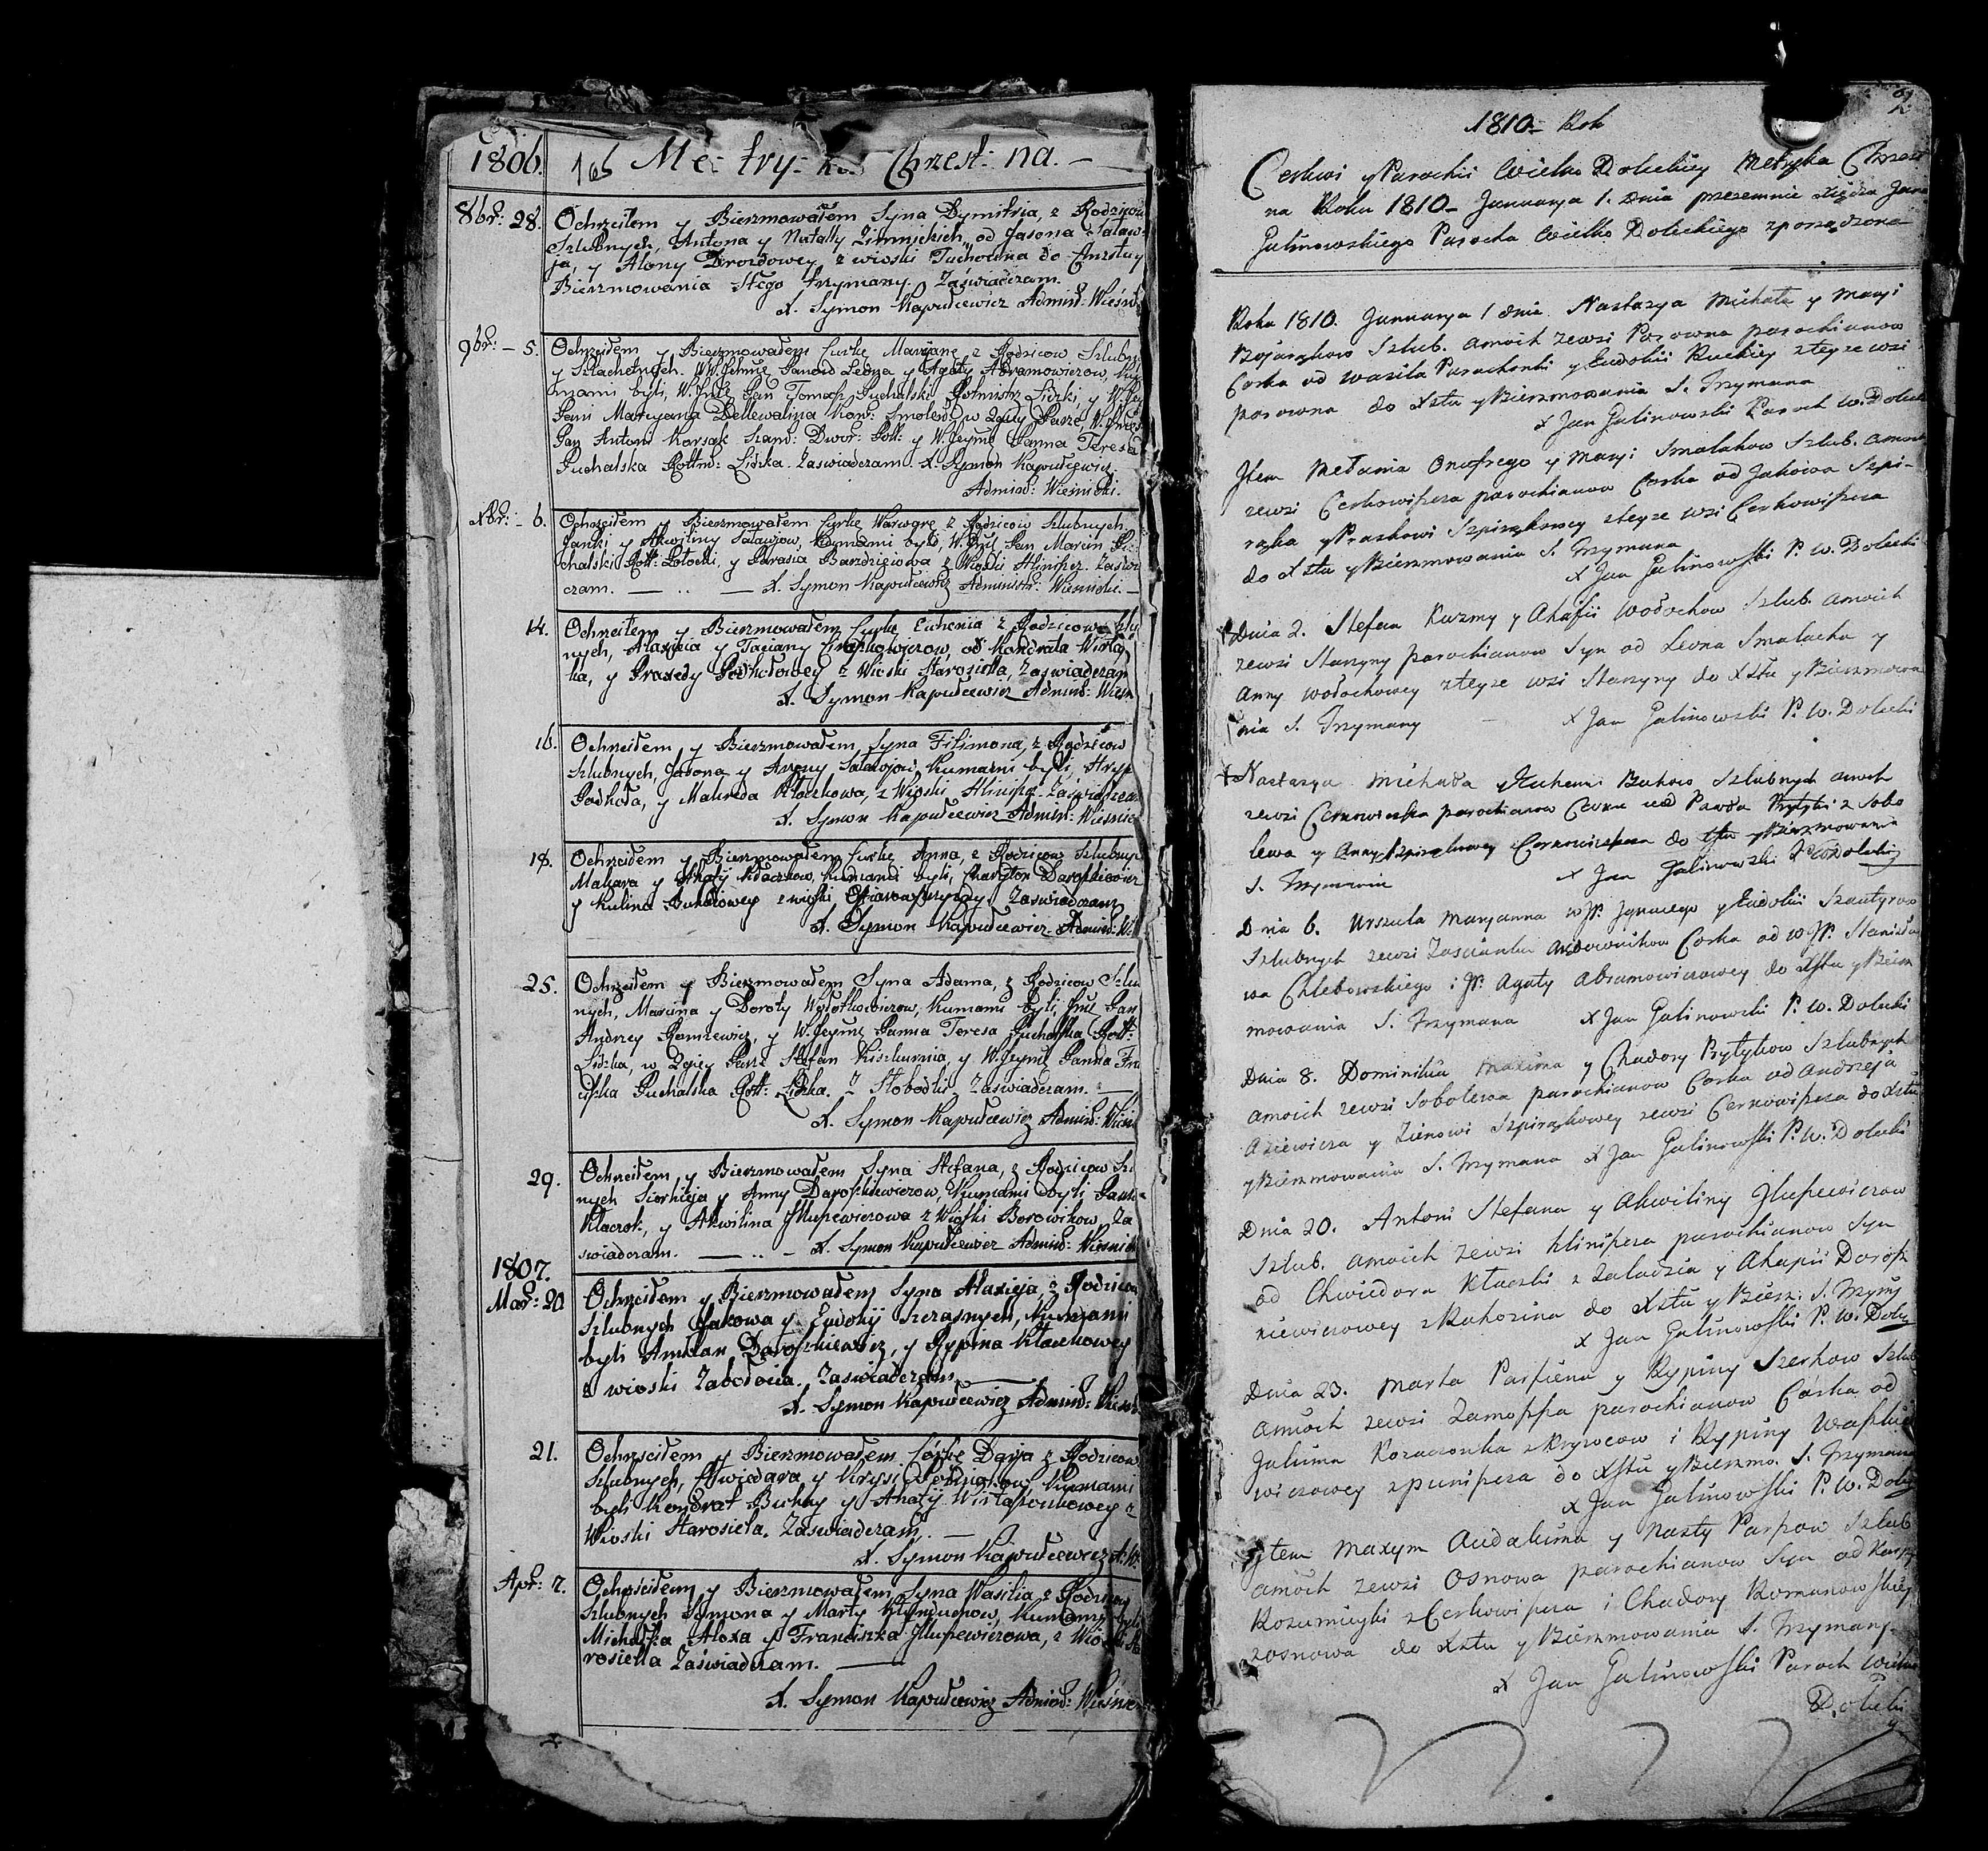 1806. 165 Me: try: ka Chrzest: na. –
8br: 28. Ochrzciłem y Bierzmowałem Syna Dymitria, z Rodzicow
Szlubnych, Antona y Natally Zimnickich, od Jasona Saław-
ja, y Alony Drozdowey z wioski Tuchowna do Chrztu y
Bierzmowania Stego trzymany. Zaświadczam.
X. Symon Kapuscewicz Admind: Wieśn
9br: – 5. Ochrzciłem y Bierzmowałem Curkę Maryanę z Rodzicow Szlubny
y Szlachetnych. WWJchmć Panow Leona y Agaty Abramowiczow, Ku
mami byli, W. Jmć Pan Tomasz Puchalski Rotmistrz Lidzki, y W.
Pani Maryana Dellewalina Kow: Smoleń: w 2giey Parze W. Jmć
Pan Antoni Korsak Szam: Dwor: Poll: y W Jeymć Panna Teresa
Puchalska Rottm: Lidzka. Zaswiadczam. X. Symon Kapuscewicz
Admind: Wieśnicki.
Xbr: – 6. Ochrzciłem y Bierzmowałem Curkę Warwarę z Rodzicow Szlubnych
Janki y Akwiliny Saławjow, Kumami byli, W. Jmć Pan Marcin Pu
chalski Rott: Połocki, y Parasia z Wioski Hlinisz. Zaswi
czam. — .. — X. Symon Kapuscewicz Administr: Wiesnicki. –
14. Ochrzciłem y Bierzmowałem Curkę Euhenia z Rodzicow Szlu
nych, Alaxieia y Taciany od Kondrata Wista
ka, y Praxedy Podhołowey z Wioski Starosiella, Zaswiadczam
X. Symon Kapuscewicz Admind: Wieśn
16. Ochrzciłem y Bierzmowałem Syna Filimona, z Rodzicow
Szlubnych, Jasona y Aryny Saławjow, Kumami byli, Hryh
Podhoła, y Małanda Kłaczkowa, z Wioski Hlinisza. Zaswiadcza
X. Symon Kapuscewicz Admind: Wieśnic
18. Ochrzciłem y Bierzmowałem Curkę Anna, z Rodzicow Szlubnych
Makara y Ahafij Kłaczkow, Kumami byli, Chariton Daroszkiewicz
y Kulina z wioski Zaswiadczam
X. Symon Kapuscewicz Admind: Wi
25. Ochrzciłem y Bierzmowałem Syna Adama, z Rodzicow Szlu
nych, Marcina y Doroty Kumami byli, Jmć Pan
Andrzey y W. Jeymć Panna Teresa Puchalska Rott:
Lidzka, w 2giey Parze Stefan y W. Jeymć Panna Fra
ciszka Puchalska Rott: Lidzka. Z Słobodki, Zaswiadczam. —
X. Symon Kapuscewicz Admind: Wieśni
29. Ochrzciłem y Bierzmowałem Syna Stefana, z Rodzicow Szl
nych Siorhieja y Anny Daroszkiewiczow, Kumami byli Pauł
Kłaczok, y Akwilina Jłłupewiczowa z Wioski Borowikow, Za
swiadczam. — .. – X. Symon Kapuscewicz Admind: Wiesnick
1807.
Mar: 20 Ochrzciłem y Bierzmowałem Syna Alaxieja, z Rodzicow
Szlubnych Jakowa y Eudokij Szczasnych, Kumami
byli Amilan Daroszkiewicz, y Rypina Kłaczkowey
z wioski Zabołocia. Zaswiadczam —
X. Symon Kapuscewicz Admind: Wieśn
21. Ochrzciłem y Bierzmowałem Córkę Darja z Rodzicow
Szlubnych, Chwiedara y Krysi Kumami
byli Kondrat y Ahafij z
Wioski Starosiela. Zaswiadczam. —
X. Symon Kapuscewicz A: W.
Apr: 7. Ochrzciłem y Bierzmowałem Syna Wasilia z Rodzicow
Szlubnych Symona y Marty Kumami byli
Michałka Aloxa y Franciszka Jłłupewiczowa, z Wioski Sta
rosiella Zaświadczam. —
X. Symon Kapuscewicz Admind: Wieśnic
2
1810– Rok
Cerkwi y Parochii Wielko Doleckiey Metryka Chrzest
na Roku 1810– Januarya 1. Dnia przezemnie Xiędza Jana
Galinowskiego Parocha Wielko Doleckiego zporządzona
Roku 1810. Januarya 1 dnia. Nastazya Michała y Maryi
Bojarzkow Szlub. amoich zewsi Porowna parochianow
Corka od Wasila y Eudokii Ruckiey zteyze wsi
porowna do Xstu y Bierzmowania S. Trzymana
x Jan Galinowski Paroch W. Doleck
Jtem Mełania Onufrego y Maryi Smalakow Szlub. amoich
zewsi Cerkowiszcza parochianow Corka od Jakowa Szpi-
razka y Praskowi Szpirazkowey zteyze wsi Cerkowiszcza
do Xstu y Bierzmowania S. Trzymana
x Jan Galinowski P. W. Dolecki
Dnia 2. Stefan Kuzmy y Ahafii Wołochow Szlub. amoich
zewsi Starzyny parochianow Syn od Leona Smalacha y
Anny Wołochowey zteyze wsi Starzyny do Xstu y Bierzmowa
nia S. Trzymany — x Jan Galinowski P. W. Dolecki
Nastazya Michała y Euhenii Szlubnych amoich
zewsi parochianow Corka od Pawła z Sobo
lewa y Anny Szpirazkowey do Xstu y Bierzmowania
S. Trzymana x Jan Galinowski P. W. Dolecki
Dnia 6. Urszula Maryanna WJP. Jgnacego y Eudokii Szantyrow
Szlubnych zewsi Zascianku Corka od WJP. Stanisła
wa Chlebowskiego i JP. Agaty Abramowiczowey do Xstu y Bierz
mowania S. Trzymana x Jan Galinowski P. W. Dolecki
Dnia 8. Dominikia Maxima y Chadory Prytykow Szlubnych
amoich zewsi Sobolewa parochianow Corka od Andrzeja
Aziewicza y Zienowi Szpirazkowey zewsi Cerkowiszcza do Xstu
y Bierzmowania S. Trzymana x Jan Galinowski P. W. Dolecki
Dnia 20. Antoni Stefana y Akwiliny Jłupewiczow
Szlub. amoich zewsi Hliniszcza parochianow Syn
od Chwiedora Kłaczki z Załadzia y Ahapii Dorosz
kiewiczowey z Rahozina do Xstu y Bierz: S. Trzym
x Jan Galinowski P. W. Dolec
Dnia 23. Marta Parfiena y Rypiny Szerkow Szlub
amoich zewsi Zamoszsza parochianow Corka od
Jakima Kozaczonka i Rypiny
wiczowey do Xstu y Bierzmo. S. Trzymana
x Jan Galinowski P. W. Dolec
Jtem Maxym Audakima y Nasty Szlub
amoich zewsi Osnowa parochianow Syn od
z Cerkowiszcza i Chadory Romanowskiey
zosnowa do Xstu y Bierzmowania S. Trzymany.
x Jan Galinowski Paroch Wielko
Dolecki